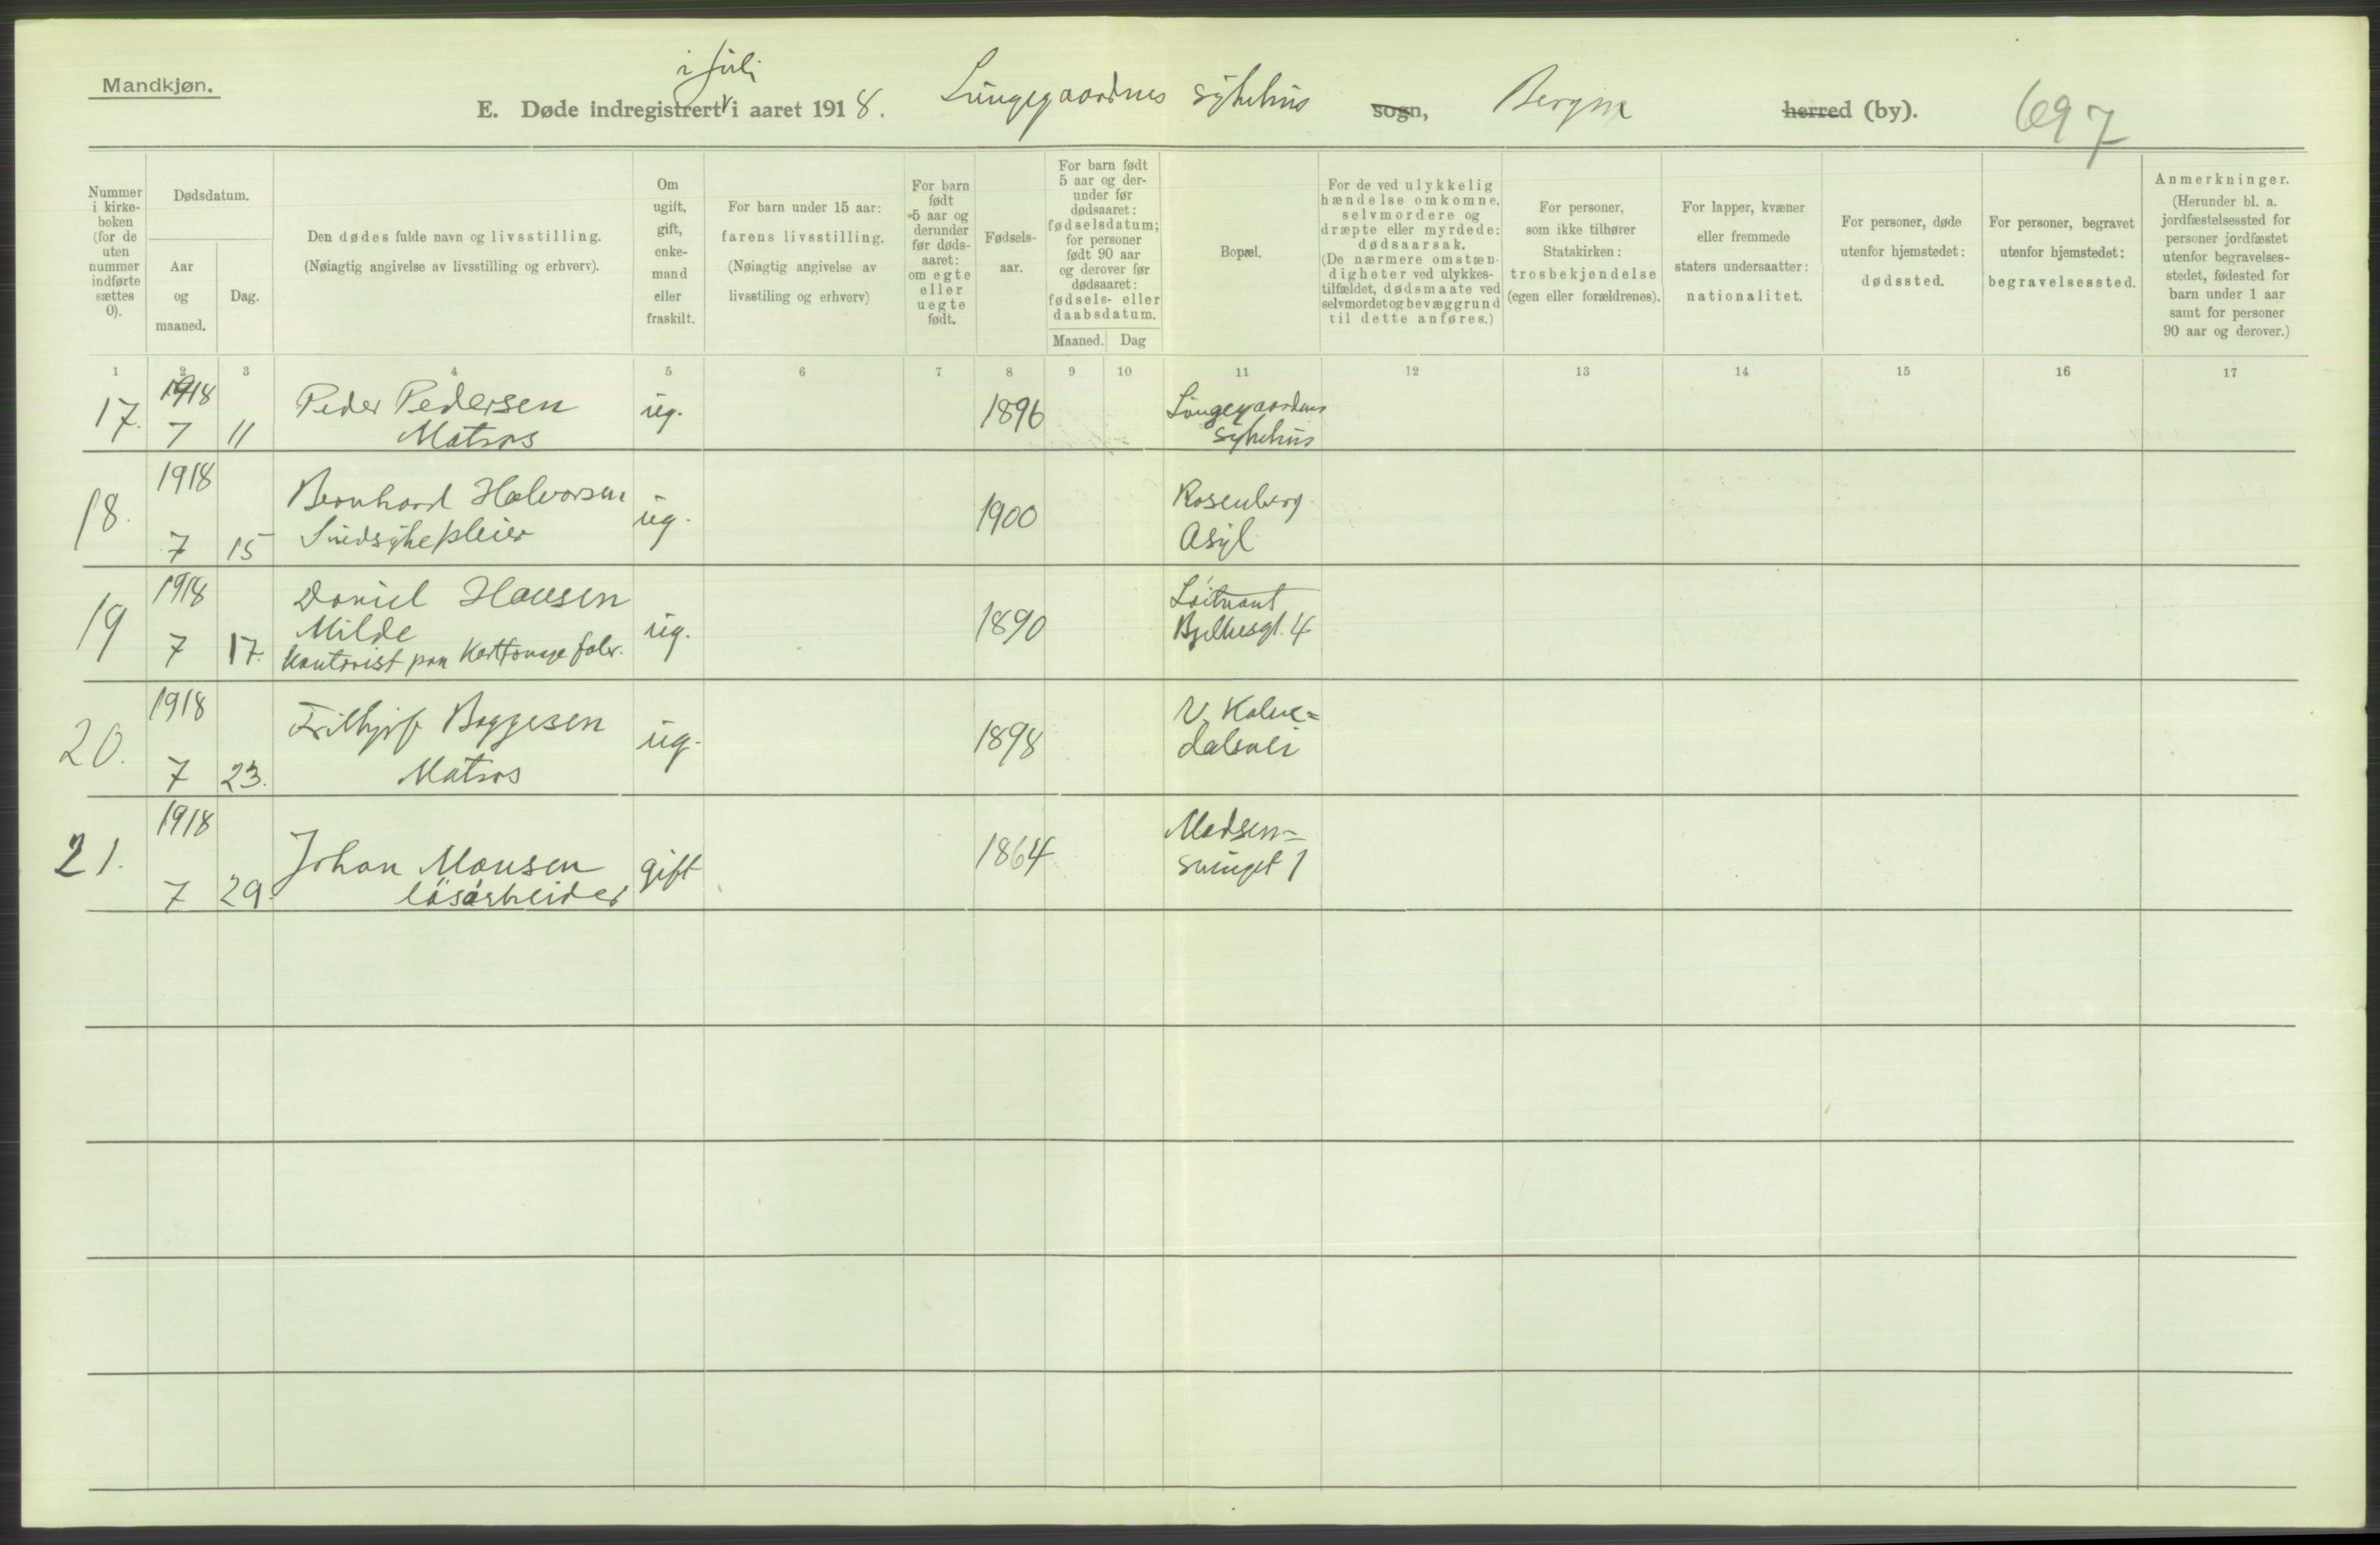 Mandkjøn.
i juli
E. Døde indregistrert i aaret 1918. Lungegaardnes sykehus sogn, Bergen herred (by). 697
Nummer i kirke-boken (for de uten nummer indførte sættes 0).
Dødsdatum.
Aar og maaned.
Dag.
Den dødes fulde navn og livsstilling.
(Nøiagtig angivelse av livsstilling og erhverv).
Om ugift, gift, enke-mand eller fraskilt.
For barn under 15 aar:
farens livsstilling.
(Nøiagtig angivelse av
livsstiling og erhverv)
For barn født 5 aar og derunder før døds-aaret: om egte eller uegte født.
Fødsels-aar.
For barn født 5 aar og der-under før dødsaaret: fødselsdatum; for personer født 90 aar og derover før dødsaaret: fødsels- eller daabsdatum.
Maaned. Dag
Bopæl.
For de ved ulykkelig hændelse omkomne, selvmordere og dræpte eller myrdede: dødsaarsak. (De nærmere omstæn-digheter ved ulykkes-tilfældet, dødsmaate ved selvmordet og bevæggrund til dette anføres.)
For personer, som ikke tilhører Statskirken: trosbekjendelse (egen eller forældrenes).
For lapper, kvæner eller fremmede staters undersaatter: nationalitet.
For personer, døde utenfor hjemstedet: dødssted.
For personer, begravet utenfor hjemstedet: begravelsessted.
Anmerkninger.
(Herunder bl. a. jordfæstelsessted for personer jordfæstet utenfor begravelses-stedet, fødested for barn under 1 aar samt for personer 90 aar og derover.)
1 2 3 4 5 6 7 8 9 10 11 12 13 14 15 16 17
17. 1918 7 11 Peder Pedersen ug. 1896 Lungegaardens
Matros sykehus
18. 1918 7 15 Bernhard Halvorsen ug. 1900 Rosenberg
Sindsykepleier Asyl
19 1918 7 17. Daniel Hansen ug. 1890 Løitnant
Milde Bjelkesgt. 4
Kontorist paa Kartonage fabr.
20. 1918 7 23. Frithjof Boggesen ug. 1898 V. Kalve=
Matros dalsvei
21. 1918 7 29. Johan Monsen gift 1864 Madsen=
løsarbeider svinget 1